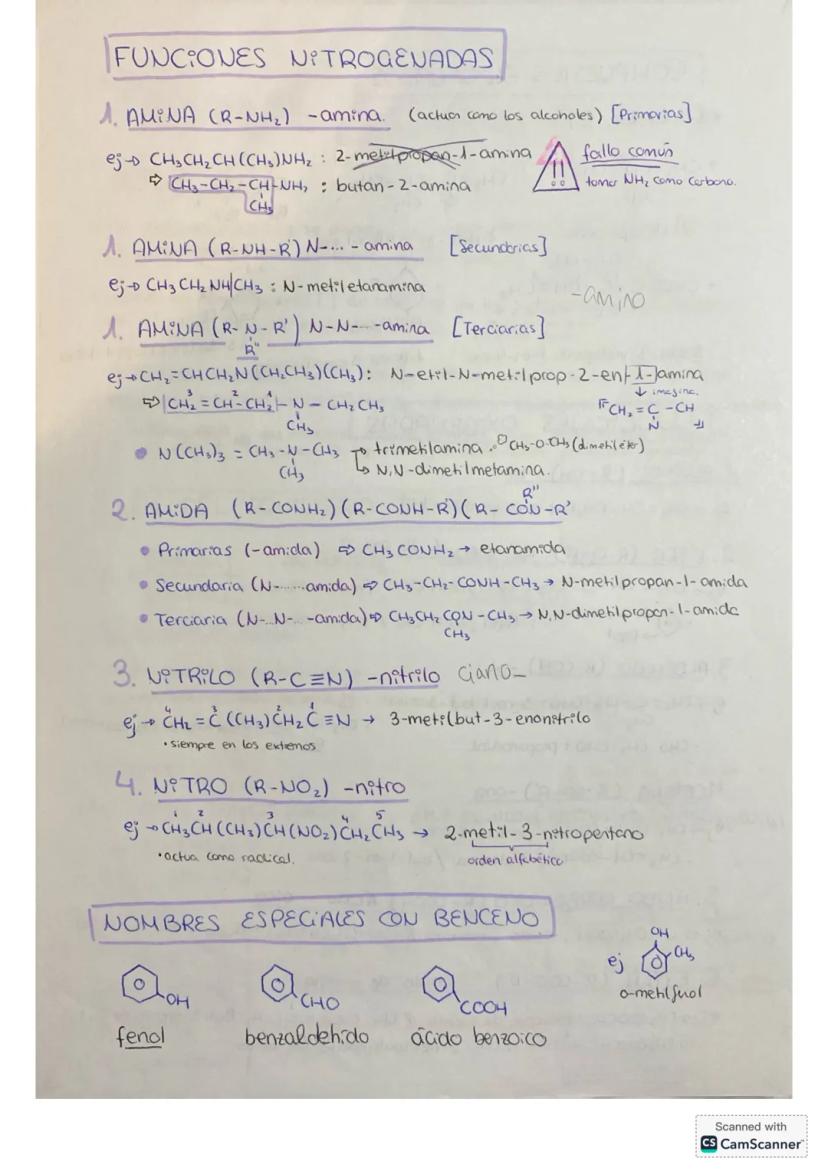 FUNCIONES NITROGENADAS
1. AMINA (R-NH₂) -amina. (actuan como los alcoholes) [Primarias]
ej→ CH₃CH₂CH(CH₃)NH₂ : 2-metilpropan-1-amina
fallo común
!!
tomar NH₂ como carbono.
⇨ CH₃-CH₂-CH-NH₂ : butan-2-amina
CH₃
1. AMINA (R-NH-R') N-... -amina [Secundarias]
ej→ CH₃CH₂NH|CH₃ : N-metiletanamina
-amino
1. AMINA (R-N-R') N-N-... -amina [Terciarias]
R''
ej→CH₂=CHCH₂N(CH₂CH₃)(CH₃): N-etil-N-metilprop-2-en-1-amina
↓ imagina.
⇨ ³CH₂=²CH-¹CH₂-N-CH₂CH₃
CH₃
CH₂=C-CH
N
• N(CH₃)₃ = CH₃-N-CH₃ → trimetilamina. CH₃-O-CH₃ (dimetiléter)
CH₃
↳ N,N-dimetilmetamina.
2. AMIDA (R-CONH₂)(R-CONH-R')(R-CON-R'
R''
• Primarias (-amida) ⇨ CH₃CONH₂ → etanamida
• Secundaria (N-......amida) ⇨ CH₃-CH₂-CONH-CH₃ → N-metilpropan-1-amida
• Terciaria (N-..N-.. -amida) ⇨ CH₃CH₂CON-CH₃ → N,N-dimetilpropan-1-amida
CH₃
3. NITRILO (R-C≡N) -nitrilo ciano-
ej→ ⁴CH₂=³C(CH₃)²CH₂¹C≡N → 3-metilbut-3-enonitrilo
• siempre en los extremos
4. NITRO (R-NO₂) -nitro
ej→ ¹CH₃²CH(CH₃)³CH(NO₂)⁴CH₂⁵CH₃ → 2-metil-3-nitropentano
• actua como radical.
orden alfabético
NOMBRES ESPECIALES CON BENCENO
OH
CHO
COOH
ej
OH
CH₃
o-metilfnol
fenol
benzaldehido
ácido benzoico
Scanned with
CS CamScanner